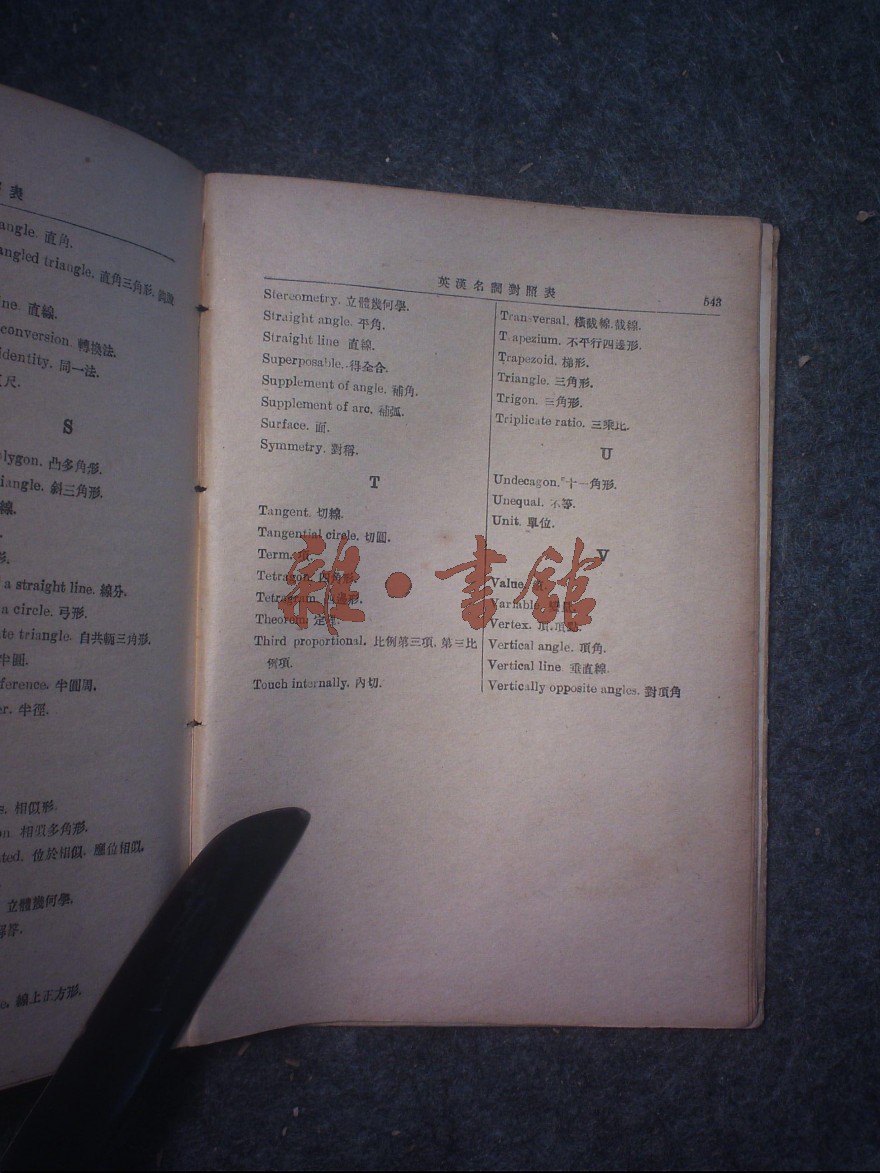 表
angle. 直角.
angled triangle. 直角三角形.
ne. 直線.
conversion. 轉換法.
identity. 同一法.
尺.
S
lygon. 凸多角形.
iangle. 斜三角形.
線.
形.
a straight line. 線分.
a circle. 弓形.
te triangle. 自共軛三角形.
半圓.
ference. 半圓周.
er. 半徑.
e. 相似形.
on. 相似多角形.
ted. 位於相似. 應位相似.
立體幾何學.
e. 線上正方形.
英漢名詞對照表 543
Stereometry. 立體幾何學.
Straight angle. 平角.
Straight line 直線.
Superposable. 得全合.
Supplement of angle. 補角.
Supplement of arc. 補弧.
Surface. 面.
Symmetry. 對稱.
T
Tangent. 切線.
Tangential circle. 切圓.
Term.
Tetragon. 四角形.
Tetragram. 四邊形.
Theorem. 定理.
Third proportional. 比例第三項. 第三比
例項.
Touch internally. 內切.
Transversal. 橫截線. 截線.
Trapezium. 不平行四邊形.
Trapezoid. 梯形.
Triangle. 三角形.
Trigon. 三角形.
Triplicate ratio. 三乘比.
U
Undecagon. 十一角形.
Unequal. 不等.
Unit. 單位.
V
Value.
Variable.
Vertex. 頂. 頂點.
Vertical angle. 頂角.
Vertical line 垂直線.
Vertically opposite angles. 對頂角
雜·書館